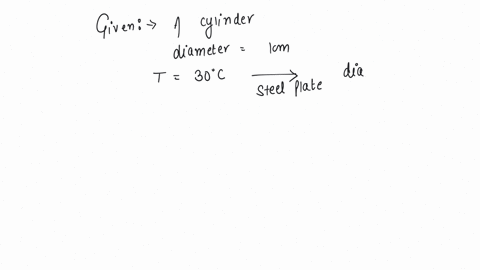 Given:→ 1 cylinder
diameter = 1cm
T = 30°C → steel plate dia